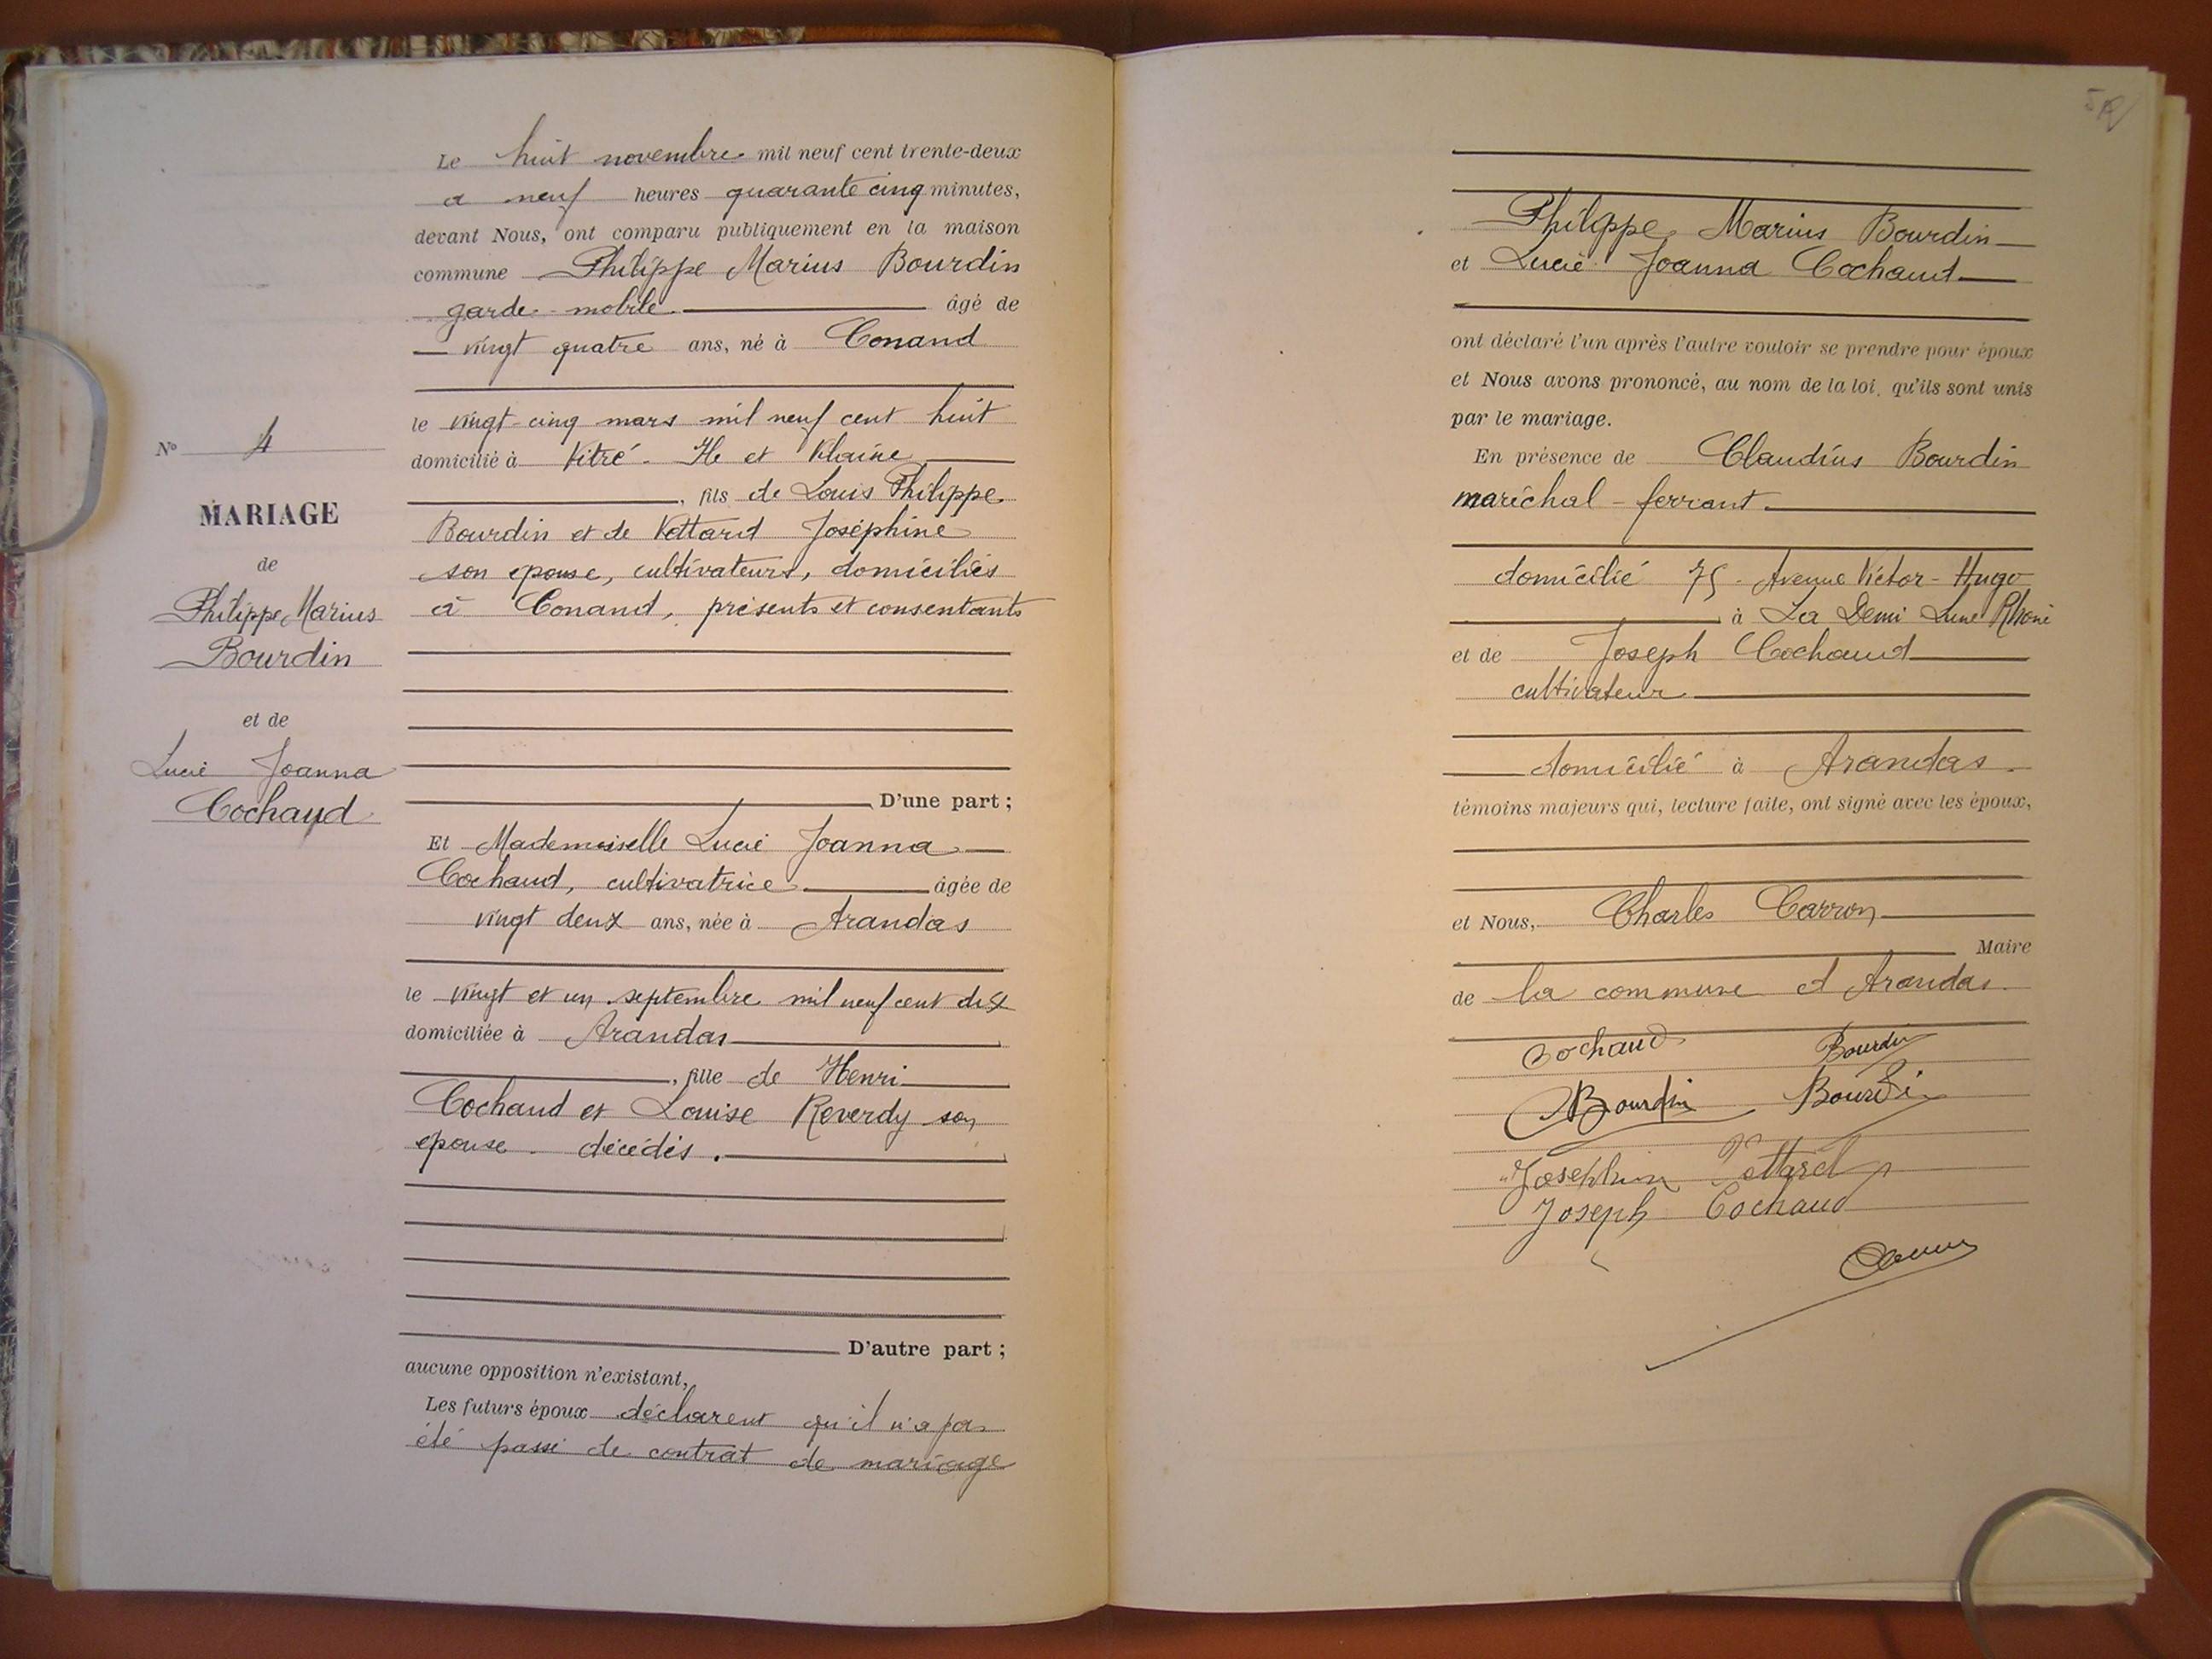 N° 4
MARIAGE
de
Philippe Marius
Bourdin
et de
Lucie Joanna
Cochaud
Le huit novembre mil neuf cent trente-deux
à neuf heures quarante cinq minutes,
devant Nous, ont comparu publiquement en la maison
commune Philippe Marius Bourdin
garde mobile âgé de
vingt quatre ans, né à Conand
le vingt-cinq mars mil neuf cent huit
domicilié à Vitré - Ille et Vilaine
, fils de Louis Philippe
Bourdin et de Vettard Joséphine
son épouse, cultivateurs, domiciliés
à Conand, présents et consentants
D'une part ;
Et Mademoiselle Lucie Joanna
Cochaud, cultivatrice âgée de
vingt deux ans, née à Arandas
le vingt et un septembre mil neuf cent dix
domiciliée à Arandas
, fille de Henri
Cochaud et Louise Reverdy son
épouse - décédés.
D'autre part ;
aucune opposition n'existant,
Les futurs époux déclarent qu'il n'a pas
été passé de contrat de mariage
Philippe Marius Bourdin
et Lucie Joanna Cochaud
ont déclaré l'un après l'autre vouloir se prendre pour époux
et Nous avons prononcé, au nom de la loi, qu'ils sont unis
par le mariage.
En présence de Claudius Bourdin
maréchal-ferrant
domicilié 75 - Avenue Victor-Hugo
à La Demi Lune Rhone
et de Joseph Cochaud
cultivateur
domicilié à Arandas
témoins majeurs qui, lecture faite, ont signé avec les époux,
et Nous, Charles Carron
Maire
de la commune d'Arandas
Cochaud Bourdin
Bourdin Bourdin
Josephine Vettard
Joseph Cochaud